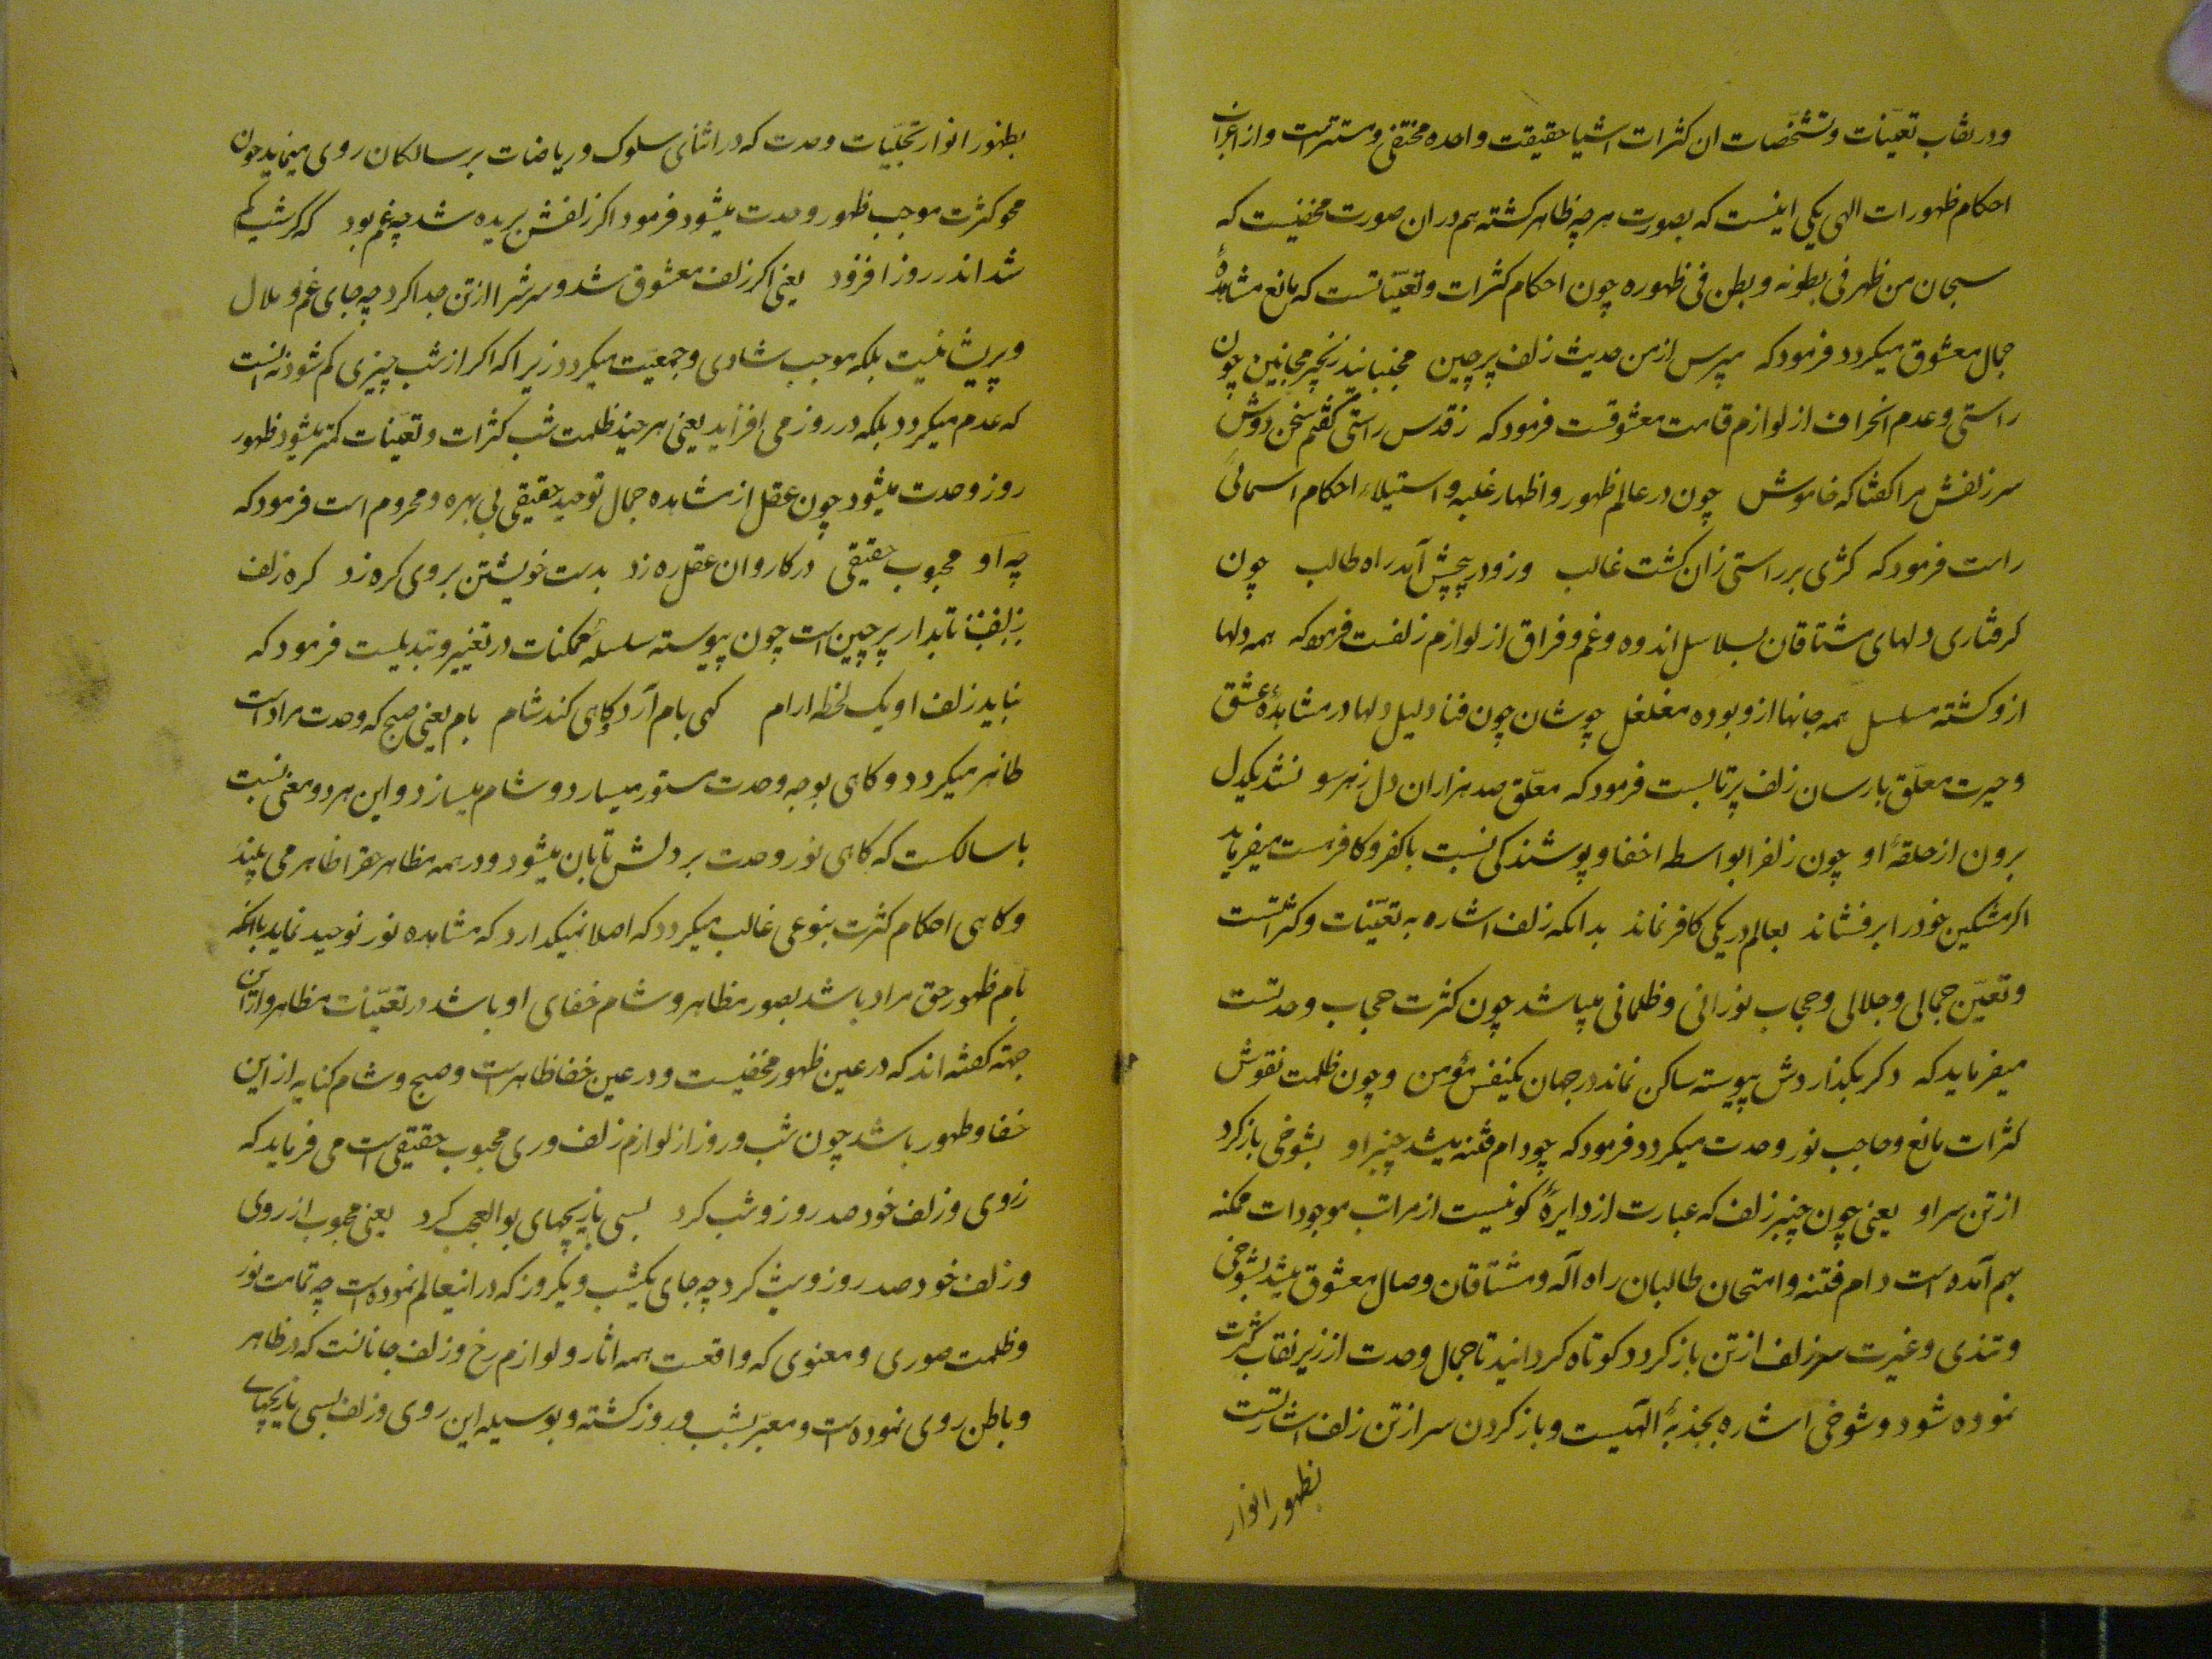 و در نقاب تعیّنات و تشخّصات ان کثرات اشیا حقیقت واحده مختفی و مستتر است و از اغراب
احکام ظهورات الهی یکی اینست که بصورت هر چه ظاهر کشته هم در ان صورت مخفیست که
سبحان من ظهر فی بطونه و بطن فی ظهوره چون احکام کثرات و تعیّناتست که مانع مشاهدهٔ
جمال معشوق میکردد فرمود که مپرس از من حدیث زلف پرچین مجنبانید زنجیر مجانین چون
راستی و عدم انحراف از لوازم قامت معشوقست فرمود که ز قدس راستی کفتم سخن دوش
سر زلفش مرا کفتا که خاموش چون در عالم ظهور و اظهار غلبه و استیلاء احکام اسمائی
راست فرمود که کژی بر راستی زان کشت غالب وزو در پیچش آمد راه طالب چون
کرفتاری دلهای مشتاقان بسلاسل اندوه و غم و فراق از لوازم زلفست فرمود که همه دلها
ازو کشته مسلسل همه جانها ازو بوده مغلغل چوشان چون قنادیل دلها در مشاهدهٔ عشق
و حیرت معلّق بارسان زلف پرتابست فرمود که معلّق صد هزاران دل ز هر سو نشد یکدل
برون از حلقهٔ او چون زلف را بواسطه اخفا و پوشندکی نسبت با کفر و کافر هست میفرماید
اکر مشکین خود را برفشاند بعالم در یکی کافر نماند بدانکه زلف اشاره به تعیّنات و کثراتست
و تعیّن جمالی و جلالی و حجاب نورانی و ظلمانی میباشد چون کثرت حجاب وحدتست
میفرماید که دکر بکذاردش پیوسته ساکن نماند در جهان یکنفس مؤمن و چون ظلمت نقوش
کثرات مانع و حاجب نور وحدت میکردد فرمود که چو دام فتنه میشد چنبر او بشوخی باز کرد
از تن سر او یعنی چون چنبر زلف که عبارت از دایرهٔ کونیست از مراتب موجودات ممکنه
بهم آمده است دام فتنه و امتحان طالبان راه اله و مشتاقان وصال معشوق میشد بشوخی
و تندی و غیرت سر زلف از تن باز کرد و کوتاه کردانید تا جمال وحدت از زیر نقاب کثرت
نموده شود و شوخی اشاره بجذبهٔ الهیست و باز کردن سر از تن زلف اشارتست
بظهور انوار
بظهور انوار تجلّیات وحدت که در اثنای سلوک و ریاضات بر سالکان روی مینماید چون
محو کثرت موجب ظهور وحدت میشود فرمود اکر زلفش بریده شد چه غم بود که کر شب کم
شد اندر روز افزود یعنی اکر زلف معشوق شد و سرش را از تن جدا کرد چه جای غم و ملال
و پریشانیست بلکه موجب شادی و جمعیّت میکردد زیرا که اکر از شب چیزی کم شود نه آنست
که عدم میکردد بلکه در روز می افزاید یعنی هر چند ظلمت شب کثرات و تعیّنات کمتر میشود ظهور
روز وحدت میشود چون عقل از مشاهده جمال توحید حقیقی بی بهره و محروم است فرمود که
چه او محبوب حقیقی در کاروان عقل ره زد بدست خویشتن بر وی کره زد کره زلف
زلف تابدار پرچین است چون پیوسته سلسلهٔ ممکنات در تغییر و تبدیلست فرمود که
نیابد زلف او یک لحظه ارام کهی بام آرد و کاهی کند شام بام یعنی صبح که وحدت مراد است
ظاهر میکردد و کاهی بوجه وحدت مستور میسازد و شام میسازد و این هر دو معنی نسبت
با سالکست که کاهی نور وحدت بر دلش تابان میشود و در همه مظاهر حق را ظاهر می بیند
و کاهی احکام کثرت بنوعی غالب میکردد که اصلا نمیکدارد که مشاهده نور توحید نماید بانکه
بام ظهور حق مراد باشد بصور مظاهر و شام خفای او باشد در تعیّنات مظاهر و ازین
جهته کفته اند که در عین ظهور مخفیست و در عین خفا ظاهر است و صبح و شام کنایه از این
خفا و ظهور باشد چون شب و روز از لوازم زلف و روی محبوب حقیقی است می فرماید که
ز روی و زلف خود صد روز و شب کرد بسی بازیچهای بوالعجب کرد یعنی محبوب از روی
و زلف خود صد روز و شب کرد چه جای یکشب و یکروز که در اینعالم نموده است چه تمامت نور
و ظلمت صوری و معنوی که واقعست همه اثار و لوازم رخ و زلف جانانست که در ظاهر
و باطن روی نموده است و معبّر بشب و روز کشته و بوسیله این روی و زلف بسی بازیچهای